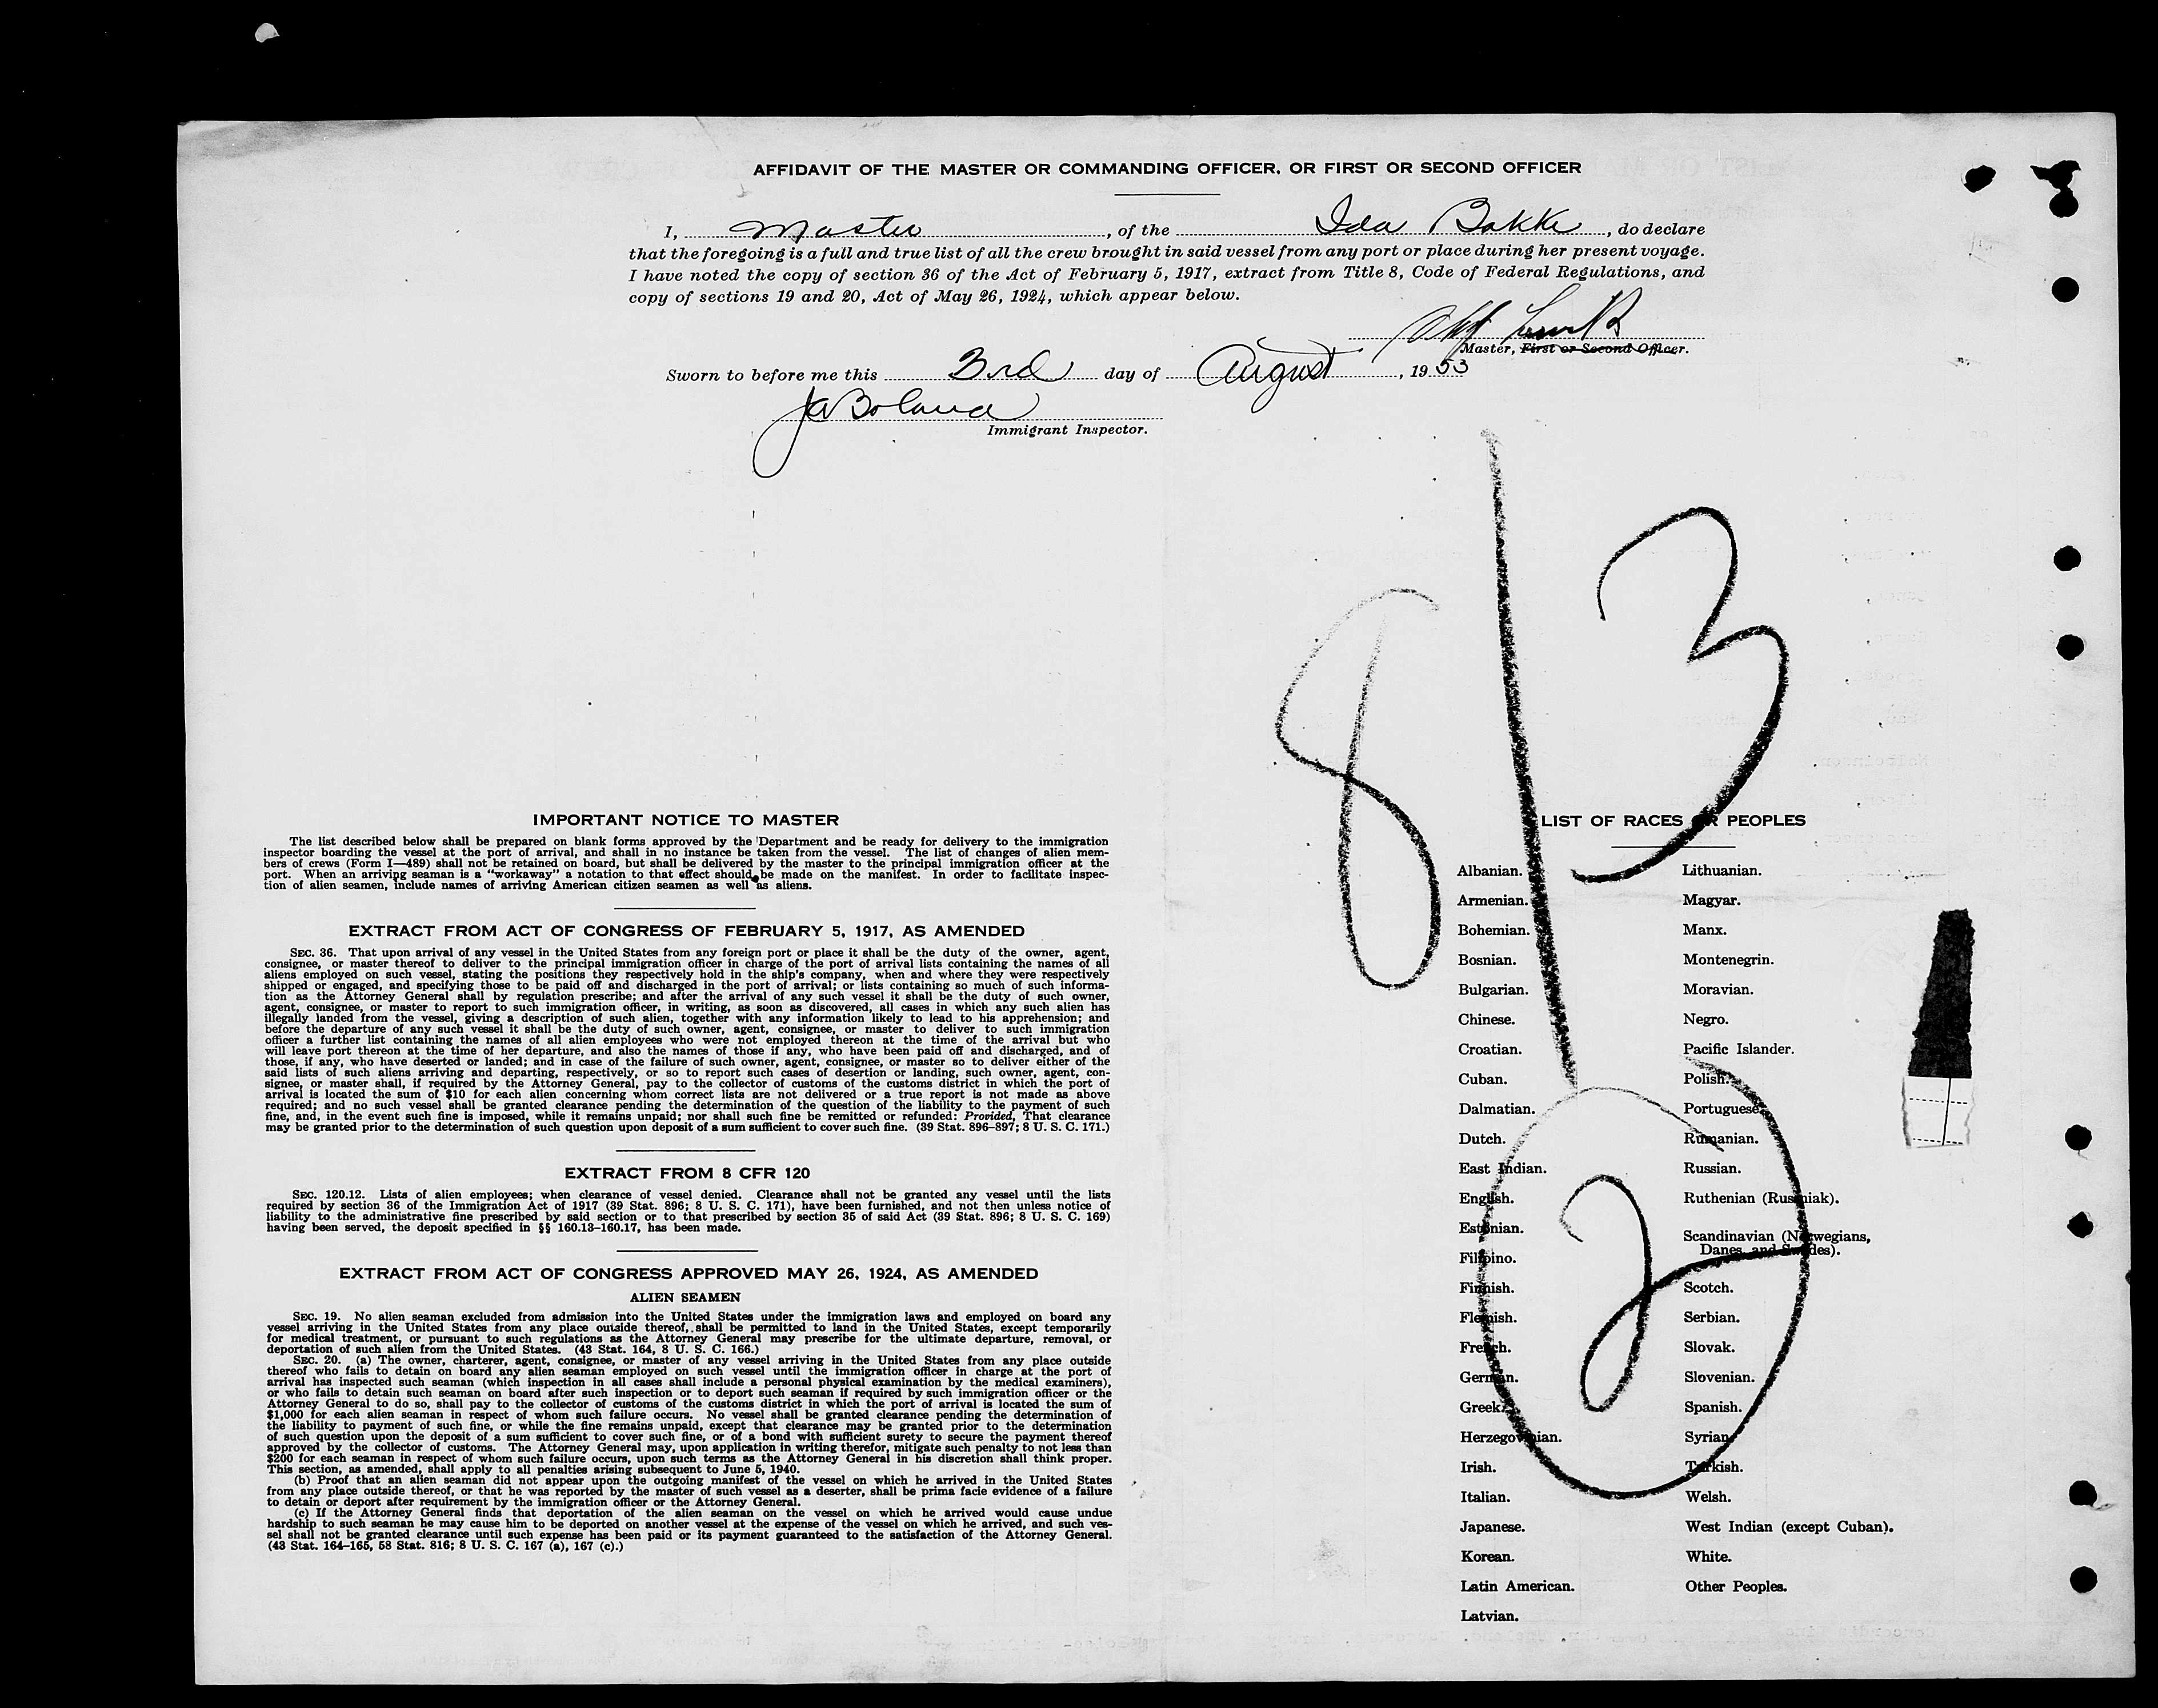 AFFIDAVIT OF THE MASTER OR COMMANDING OFFICER, OR FIRST OR SECOND OFFICER
I, Master, of the Ida Bakke, do declare
that the foregoing is a full and true list of all the crew brought in said vessel from any port or place during her present voyage.
I have noted the copy of section 36 of the Act of February 5, 1917, extract from Title 8, Code of Federal Regulations, and
copy of sections 19 and 20, Act of May 26, 1924, which appear below.
Master, First or Second Officer.
Sworn to before me this 3rd day of August, 1953
JABoland
Immigrant Inspector.
8/3
2
IMPORTANT NOTICE TO MASTER
The list described below shall be prepared on blank forms approved by the Department and be ready for delivery to the immigration
inspector boarding the vessel at the port of arrival, and shall in no instance be taken from the vessel. The list of changes of alien mem-
bers of crews (Form I—489) shall not be retained on board, but shall be delivered by the master to the principal immigration officer at the
port. When an arriving seaman is a "workaway" a notation to that effect should be made on the manifest. In order to facilitate inspec-
tion of alien seamen, include names of arriving American citizen seamen as well as aliens.
EXTRACT FROM ACT OF CONGRESS OF FEBRUARY 5, 1917, AS AMENDED
SEC. 36. That upon arrival of any vessel in the United States from any foreign port or place it shall be the duty of the owner, agent,
consignee, or master thereof to deliver to the principal immigration officer in charge of the port of arrival lists containing the names of all
aliens employed on such vessel, stating the positions they respectively hold in the ship's company, when and where they were respectively
shipped or engaged, and specifying those to be paid off and discharged in the port of arrival; or lists containing so much of such informa-
tion as the Attorney General shall by regulation prescribe; and after the arrival of any such vessel it shall be the duty of such owner,
agent, consignee, or master to report to such immigration officer, in writing, as soon as discovered, all cases in which any such alien has
illegally landed from the vessel, giving a description of such alien, together with any information likely to lead to his apprehension; and
before the departure of any such vessel it shall be the duty of such owner, agent, consignee, or master to deliver to such immigration
officer a further list containing the names of all alien employees who were not employed thereon at the time of the arrival but who
will leave port thereon at the time of her departure, and also the names of those if any, who have been paid off and discharged, and of
those, if any, who have deserted or landed; and in case of the failure of such owner, agent, consignee, or master so to deliver either of the
said lists of such aliens arriving and departing, respectively, or so to report such cases of desertion or landing, such owner, agent, con-
signee, or master shall, if required by the Attorney General, pay to the collector of customs of the customs district in which the port of
arrival is located the sum of $10 for each alien concerning whom correct lists are not delivered or a true report is not made as above
required; and no such vessel shall be granted clearance pending the determination of the question of the liability to the payment of such
fine, and, in the event such fine is imposed, while it remains unpaid; nor shall such fine be remitted or refunded: Provided, That clearance
may be granted prior to the determination of such question upon deposit of a sum sufficient to cover such fine. (39 Stat. 896-897; 8 U. S. C. 171.)
EXTRACT FROM 8 CFR 120
SEC. 120.12. Lists of alien employees; when clearance of vessel denied. Clearance shall not be granted any vessel until the lists
required by section 36 of the Immigration Act of 1917 (39 Stat. 896; 8 U. S. C. 171), have been furnished, and not then unless notice of
liability to the administrative fine prescribed by said section or to that prescribed by section 35 of said Act (39 Stat. 896; 8 U. S. C. 169)
having been served, the deposit specified in §§ 160.13-160.17, has been made.
EXTRACT FROM ACT OF CONGRESS APPROVED MAY 26, 1924, AS AMENDED
ALIEN SEAMEN
SEC. 19. No alien seaman excluded from admission into the United States under the immigration laws and employed on board any
vessel arriving in the United States from any place outside thereof, shall be permitted to land in the United States, except temporarily
for medical treatment, or pursuant to such regulations as the Attorney General may prescribe for the ultimate departure, removal, or
deportation of such alien from the United States. (43 Stat. 164, 8 U. S. C. 166.)
SEC. 20. (a) The owner, charterer, agent, consignee, or master of any vessel arriving in the United States from any place outside
thereof who fails to detain on board any alien seaman employed on such vessel until the immigration officer in charge at the port of
arrival has inspected such seaman (which inspection in all cases shall include a personal physical examination by the medical examiners),
or who fails to detain such seaman on board after such inspection or to deport such seaman if required by such immigration officer or the
Attorney General to do so, shall pay to the collector of customs of the customs district in which the port of arrival is located the sum of
$1,000 for each alien seaman in respect of whom such failure occurs. No vessel shall be granted clearance pending the determination of
the liability to payment of such fine, or while the fine remains unpaid, except that clearance may be granted prior to the determination
of such question upon the deposit of a sum sufficient to cover such fine, or of a bond with sufficient surety to secure the payment thereof
approved by the collector of customs. The Attorney General may, upon application in writing therefor, mitigate such penalty to not less than
$200 for each seaman in respect of whom such failure occurs, upon such terms as the Attorney General in his discretion shall think proper.
This section, as amended, shall apply to all penalties arising subsequent to June 5, 1940.
(b) Proof that an alien seaman did not appear upon the outgoing manifest of the vessel on which he arrived in the United States
from any place outside thereof, or that he was reported by the master of such vessel as a deserter, shall be prima facie evidence of a failure
to detain or deport after requirement by the immigration officer or the Attorney General.
(c) If the Attorney General finds that deportation of the alien seaman on the vessel on which he arrived would cause undue
hardship to such seaman he may cause him to be deported on another vessel at the expense of the vessel on which he arrived, and such ves-
sel shall not be granted clearance until such expense has been paid or its payment guaranteed to the satisfaction of the Attorney General.
(43 Stat. 164-165, 58 Stat. 816; 8 U. S. C. 167 (a), 167 (c).)
LIST OF RACES OR PEOPLES
Albanian.
Armenian.
Bohemian.
Bosnian.
Bulgarian.
Chinese.
Croatian.
Cuban.
Dalmatian.
Dutch.
East Indian.
English.
Estonian.
Filipino.
Finnish.
Flemish.
French.
German.
Greek.
Herzegovinian.
Irish.
Italian.
Japanese.
Korean.
Latin American.
Latvian.
Lithuanian.
Magyar.
Manx.
Montenegrin.
Moravian.
Negro.
Pacific Islander.
Polish.
Portuguese.
Rumanian.
Russian.
Ruthenian (Russniak).
Scandinavian (Norwegians,
Danes, and Swedes).
Scotch.
Serbian.
Slovak.
Slovenian.
Spanish.
Syrian.
Turkish.
Welsh.
West Indian (except Cuban).
White.
Other Peoples.